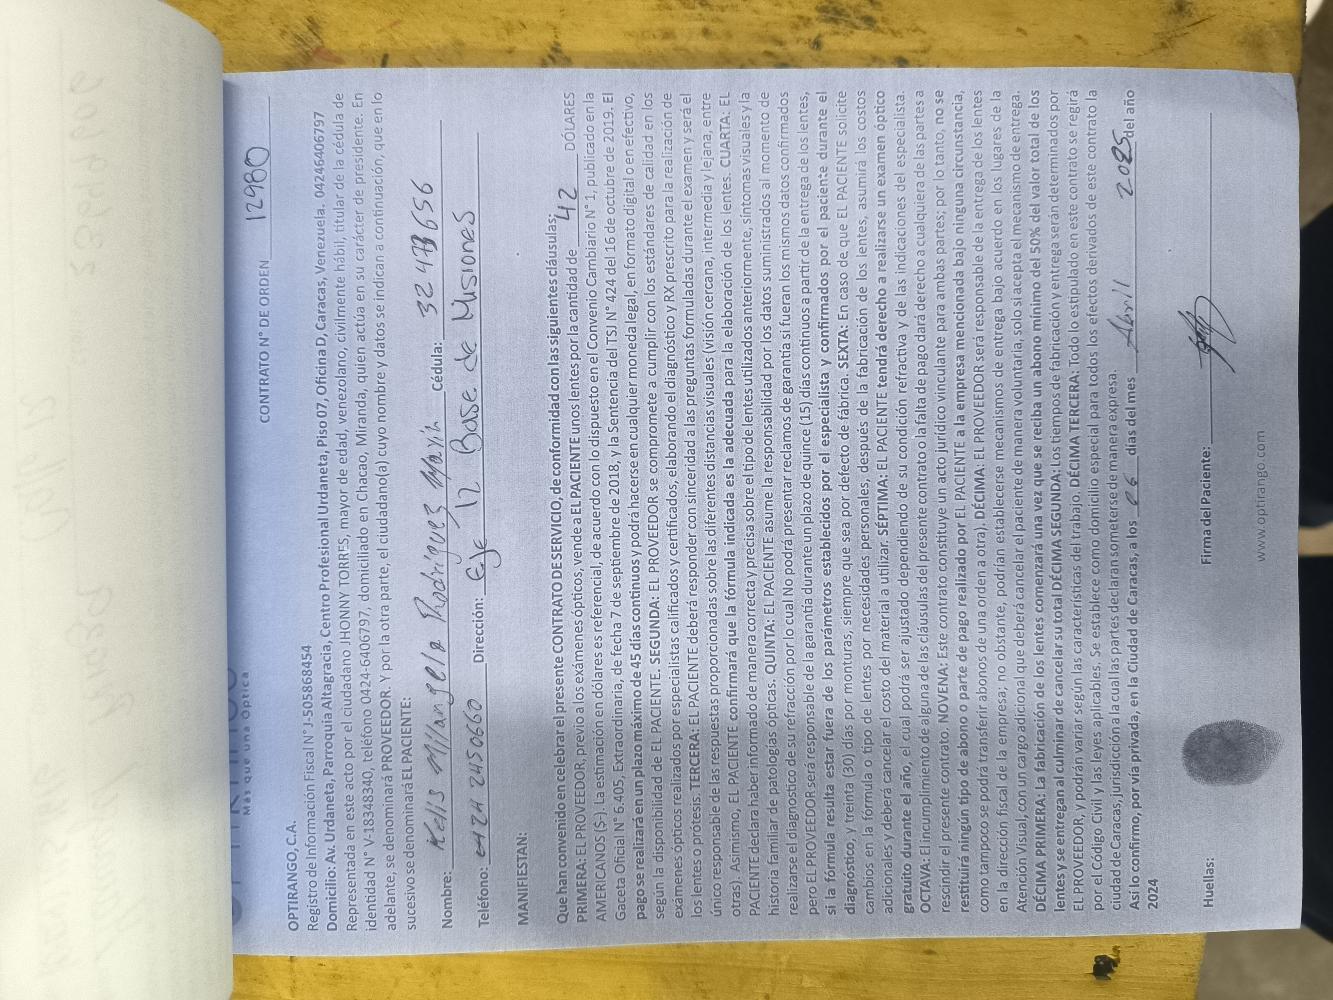 Más que una Óptica
OPTIRANGO, C.A.
CONTRATO N° DE ORDEN 12980
Registro de Información Fiscal N° J-505868454
Domicilio: Av. Urdaneta, Parroquia Altagracia, Centro Profesional Urdaneta, Piso 07, Oficina D, Caracas, Venezuela. 04246406797
Representada en este acto por el ciudadano JHONNY TORRES, mayor de edad, venezolano, civilmente hábil, titular de la cédula de
identidad N° V-18348340, teléfono 0424-6406797, domiciliado en Chacao, Miranda, quien actúa en su carácter de presidente. En
adelante, se denominará PROVEEDOR. Y por la otra parte, el ciudadano(a) cuyo nombre y datos se indican a continuación, que en lo
sucesivo se denominará EL PACIENTE:
Nombre: Rodriguez Cédula:
Teléfono: 0424 2450660 Dirección: Eje 12 Base de Misiones
MANIFIESTAN:
Que han convenido en celebrar el presente CONTRATO DE SERVICIO, de conformidad con las siguientes cláusulas:
PRIMERA: EL PROVEEDOR, previo a los exámenes ópticos, vende a EL PACIENTE unos lentes por la cantidad de 42 DÓLARES
AMERICANOS ($-) La estimación en dólares es referencial, de acuerdo con lo dispuesto en el Convenio Cambiario N° 1, publicado en la
Gaceta Oficial N° 6.405, Extraordinaria, de fecha 7 de septiembre de 2018, y la Sentencia del TSJ N° 424 del 16 de octubre de 2019. El
pago se realizará en un plazo máximo de 45 días continuos y podrá hacerse en cualquier moneda legal, en formato digital o en efectivo,
según la disponibilidad de EL PACIENTE. SEGUNDA: EL PROVEEDOR se compromete a cumplir con los estándares de calidad en los
exámenes ópticos realizados por especialistas calificados y certificados, elaborando el diagnóstico y RX prescrito para la realización de
los lentes o prótesis. TERCERA: EL PACIENTE deberá responder con sinceridad a las preguntas formuladas durante el examen y será el
único responsable de las respuestas proporcionadas sobre las diferentes distancias visuales (visión cercana, intermedia y lejana, entre
otras). Asimismo, EL PACIENTE confirmará que la fórmula indicada es la adecuada para la elaboración de los lentes. CUARTA: EL
PACIENTE declara haber informado de manera correcta y precisa sobre el tipo de lentes utilizados anteriormente, síntomas visuales y la
historia familiar de patologías ópticas. QUINTA: EL PACIENTE asume la responsabilidad por los datos suministrados al momento de
realizarse el diagnostico de su refracción por lo cual No podrá presentar reclamos de garantía si fueran los mismos datos confirmados
pero EL PROVEEDOR será responsable de la garantía durante un plazo de quince (15) días continuos a partir de la entrega de los lentes,
si la fórmula resulta estar fuera de los parámetros establecidos por el especialista y confirmados por el paciente durante el
diagnóstico, y treinta (30) días por monturas, siempre que sea por defecto de fábrica. SEXTA: En caso de que EL PACIENTE solicite
cambios en la fórmula o tipo de lentes por necesidades personales, después de la fabricación de los lentes, asumirá los costos
adicionales y deberá cancelar el costo del material a utilizar. SÉPTIMA: EL PACIENTE tendrá derecho a realizarse un examen óptico
gratuito durante el año, el cual podrá ser ajustado dependiendo de su condición refractiva y de las indicaciones del especialista.
OCTAVA: El incumplimiento de alguna de las cláusulas del presente contrato o la falta de pago dará derecho a cualquiera de las partes a
rescindir el presente contrato. NOVENA: Este contrato constituye un acto jurídico vinculante para ambas partes; por lo tanto, no se
restituirá ningún tipo de abono o parte de pago realizado por EL PACIENTE a la empresa mencionada bajo ninguna circunstancia,
como tampoco se podrá transferir abonos de una orden a otra). DÉCIMA: El PROVEEDOR será responsable de la entrega de los lentes
en la dirección fiscal de la empresa; no obstante, podrían establecerse mecanismos de entrega bajo acuerdo en los lugares de la
Atención Visual, con un cargo adicional que deberá cancelar el paciente de manera voluntaria, solo si acepta el mecanismo de entrega.
DÉCIMA PRIMERA: La fabricación de los lentes comenzará una vez que se reciba un abono mínimo del 50% del valor total de los
lentes y se entregan al culminar de cancelar su total DÉCIMA SEGUNDA: Los tiempos de fabricación y entrega serán determinados por
EL PROVEEDOR, y podrán variar según las características del trabajo. DÉCIMA TERCERA: Todo lo estipulado en este contrato se regirá
por el Código Civil y las leyes aplicables. Se establece como domicilio especial para todos los efectos derivados de este contrato la
ciudad de Caracas, jurisdicción a la cual las partes declaran someterse de manera expresa.
Así lo confirmo, por vía privada, en la Ciudad de Caracas, a los 06 días del mes Abril 2025 del año
2024
Huellas: Firma del Paciente:
www.optirango.com